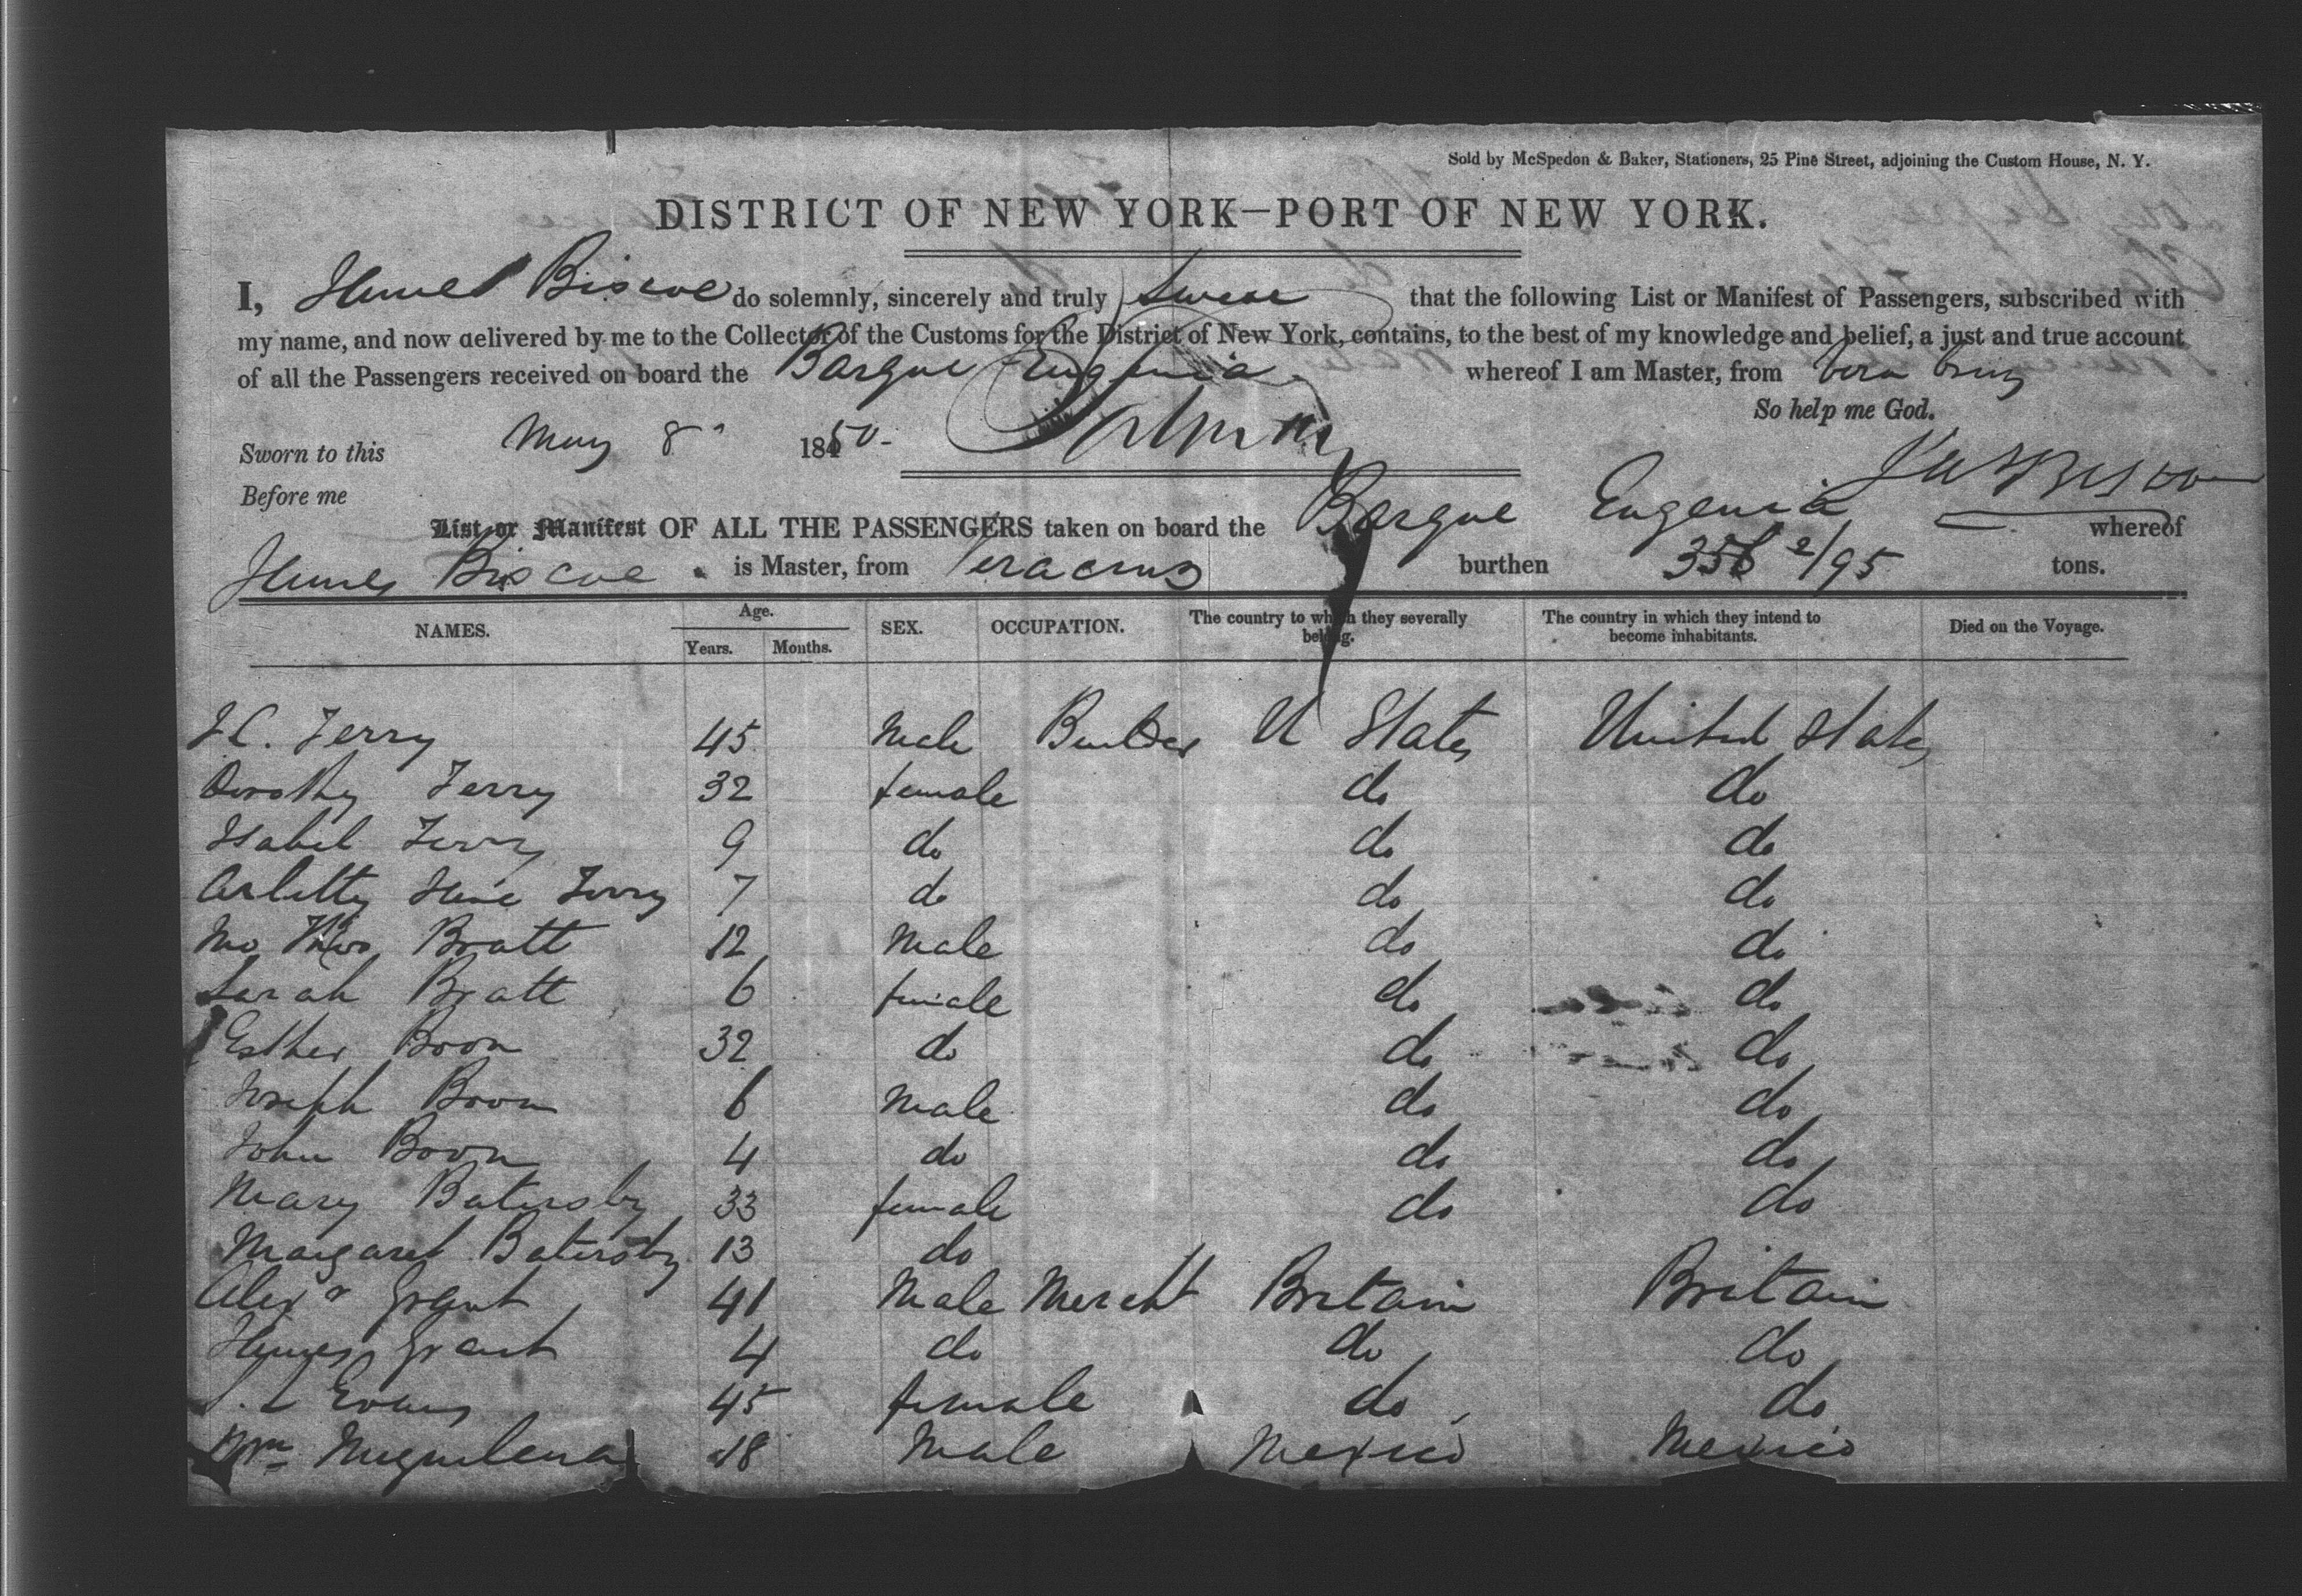 Sold by McSpedon & Baker, Stationers, 25 Pine Street, adjoining the Custom House, N. Y.
DISTRICT OF NEW YORK—PORT OF NEW YORK.
I, James Biscoe do solemnly, sincerely and truly Swear that the following List or Manifest of Passengers, subscribed with
my name, and now delivered by me to the Collector of the Customs for the District of New York, contains, to the best of my knowledge and belief, a just and true account
of all the Passengers received on board the Barque Eugenia whereof I am Master, from Vera Cruz
So help me God.
Sworn to this May 8 1850
Jas Biscoe
Before me
List or Manifest OF ALL THE PASSENGERS taken on board the Barque Eugenia whereof
James Biscoe is Master, from Veracruz burthen 356 2/95 tons.
NAMES. Age. Years. Months. SEX. OCCUPATION. The country to which they severally belong. The country in which they intend to become inhabitants. Died on the Voyage.
J C. Terry 45 Male Builder U States United States
Dorothy Terry 32 female do do
Isabel Terry 9 do do do
Arletty Jane Terry 7 do do do
Bratt 12 Male do do
Sarah Bratt 6 female do do
Esther Boon 32 do do do
Joseph Boon 6 Male do do
John Boon 4 do do do
Mary Batersby 33 female do do
Margaret Batersby 13 do
Alexr Grant 41 Male Mercht Britain Britain
James Grant 4 do do do
L Evans 45 female do do
Miguelena 18 Male Mexico Mexico